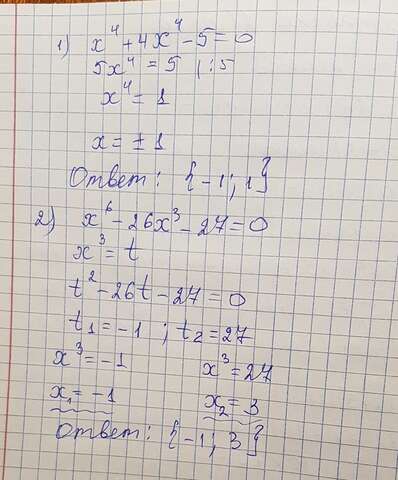 1) x⁴ + 4x⁴ - 5 = 0
5x⁴ = 5 | : 5
x⁴ = 1
x = ± 1
Ответ: {-1; 1}
2) x⁶ - 26x³ - 27 = 0
x³ = t
t² - 26t - 27 = 0
t₁ = -1 ; t₂ = 27
x³ = -1 x³ = 27
x₁ = -1 x₂ = 3
Ответ: {-1; 3}